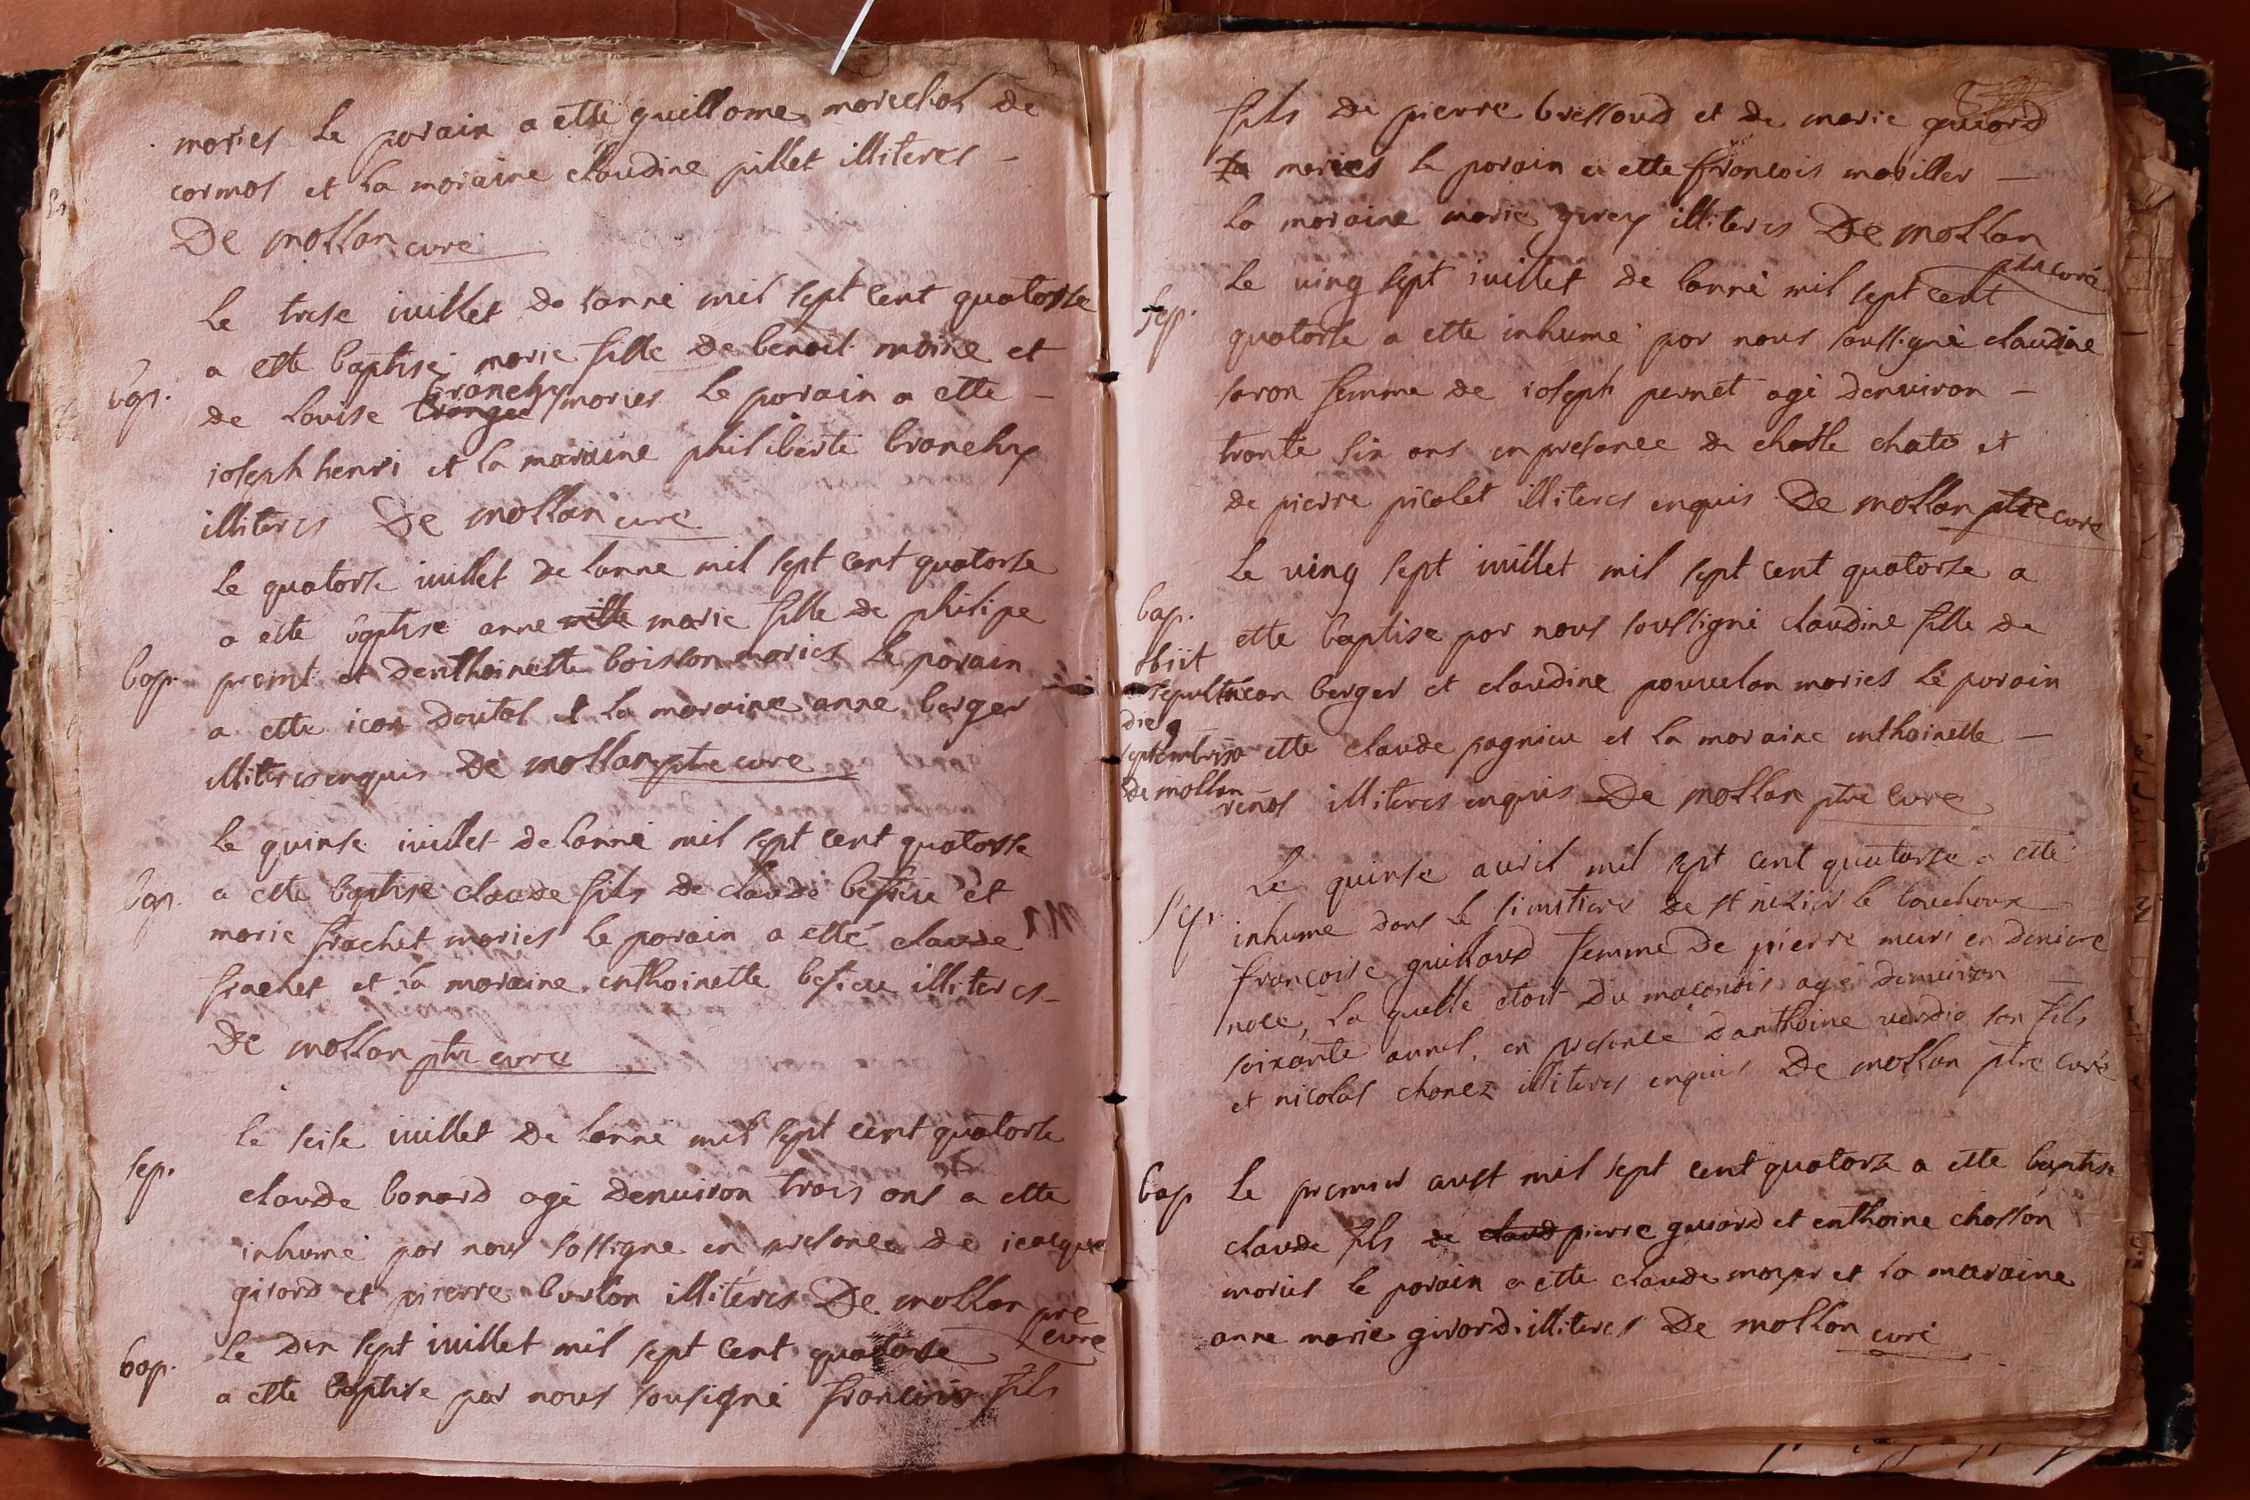 mories le porain a etté guillome morechol de
cormos et la moraine claudine pillet illiteres
De mollan curé
Le trese iuillet de lanné mil sept cent quatorse
a etté baptisé morie fille de benoit moine et
bap.
branchy
de lovise mories le porain a ette
ioseph henri et la moraine philiberte branchy
illiteres De mollan curé
Le quatorse iuillet de lanne mil sept cent quatorse
a ette baptise anne morie fille de philipe
bap. premt et denthoinette boisson mories le porain
a ette iean doutel et la moraine anne berger
illiteres enquis De mollan ptre cure
le quinse iuillet de lanné mil sept cent quatorse
bap. a ette baptise claude fils de claude besieu et
morie frachet mories le porain a etté claude
frachet et la moraine enthoinette besieu illiteres
De mollan ptre cure
le seise iuillet de lanné mil sept cent quatorse
sep.
claude bonard agé denuiron trois ans a ette
inhumé par nous sossigne en presance de icacque
girard et pierre burlon illiteres De mollan ptre
cure
bap. Le dix sept iuillet mil sept cent quatorse
a ette baptise par nous sousigné francois fils
fils de pierre bressoud et de morie guiord
mories le porain a ette francois moriller
la moraine morie gurey illiteres De mollan
ptre curé
Le ving sept iuillet de lanné mil sept cent
sep.
quatorse a ette inhumé par nous soussigné claudine
soron femme de ioseph pernet agé denuiron
trante six ans en presance de charle chate et
de pierre picolet illiteres enquis De mollan ptre cure
Le ving sept iuillet mil sept cent quatorse a
bap.
ette baptise par nous soussigné claudine fille de
obiit
sepulta
iean berger et claudine pouuelan mories le porain
die 9
septembris
a ette claude pagnieu et la moraine enthoinette
de mollan
renos illiteres enquis De mollan ptre cure
Le quinse auril mil sept cent quatorse a etté
sep. inhume dans le simitiere de st nizier le bouchoux
francoise guillaud femme de pierre meuri en
la quelle etoit du maconois agé denuiron
soixante annes, en presance danthoine verdio son fils
et nicolas chanez illiteres enquis De mollan ptre curé
bap Le premier aust mil sept cent quatorse a ette baptise
claude fils de claud pierre guiord et enthoine chosson
mories le porain a ette claude moyr et la maraine
anne morie girord illiteres De mollan curé